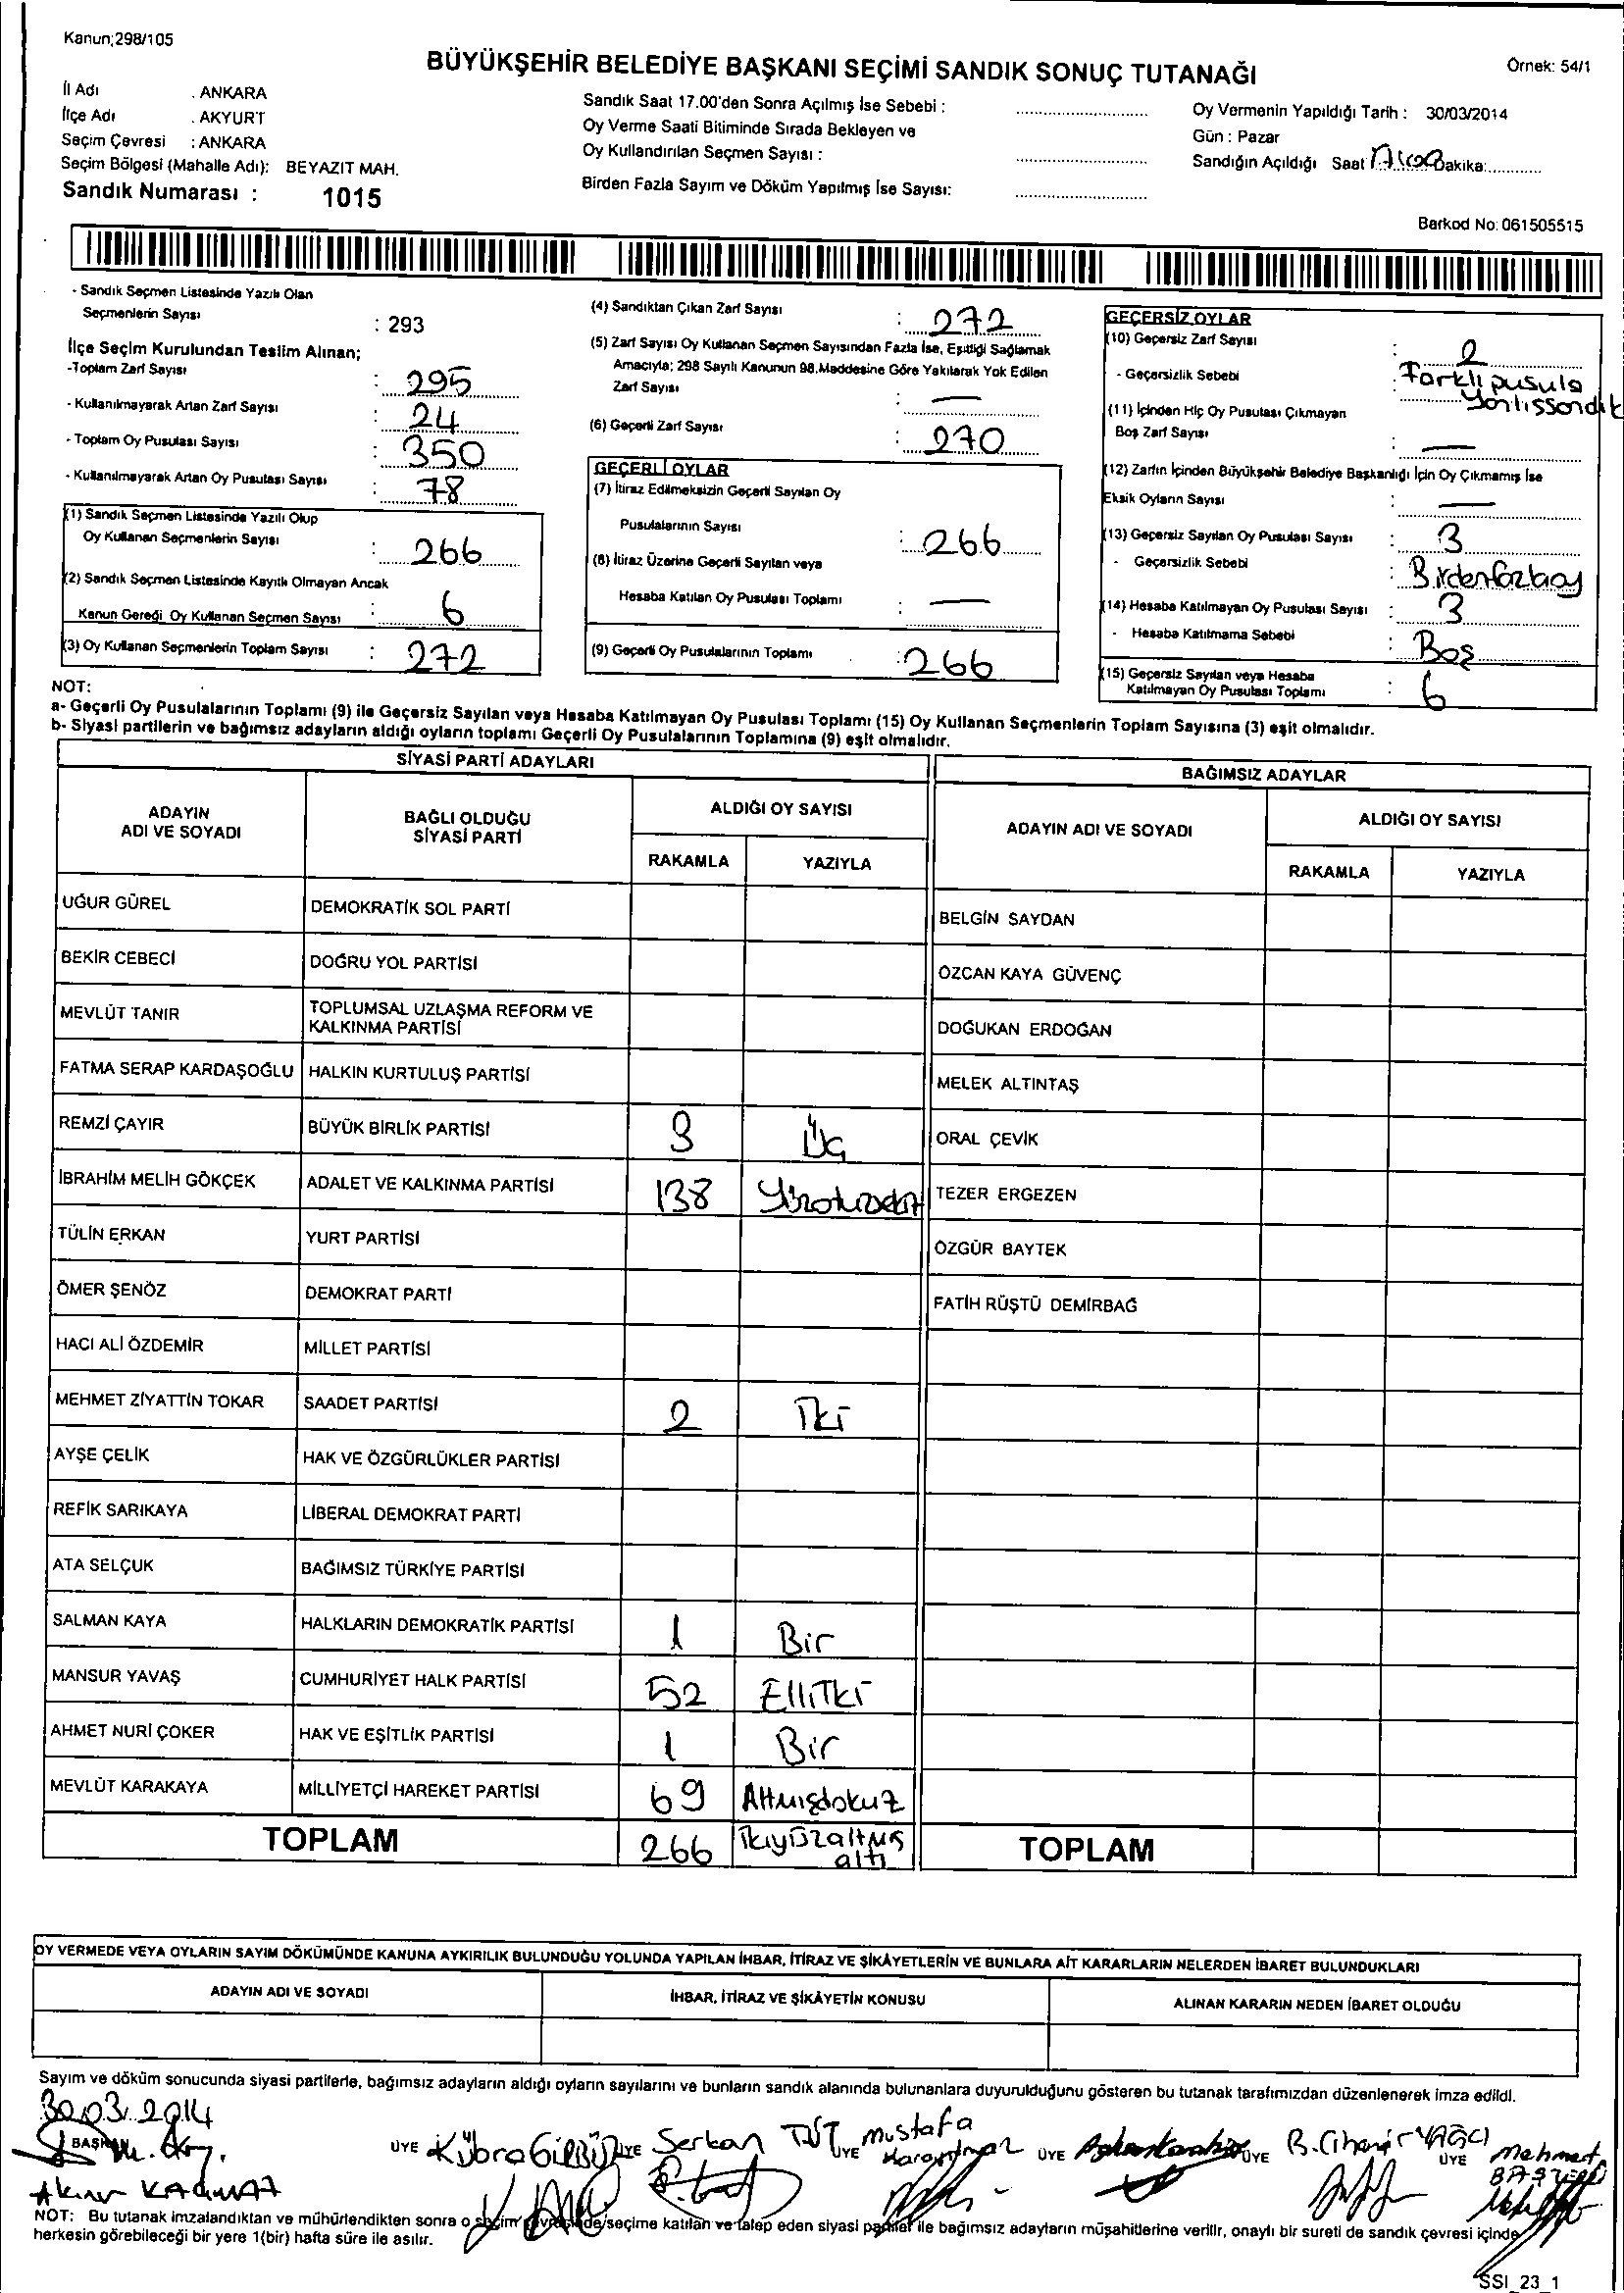 Kanun;298/105
BÜYÜKŞEHİR BELEDİYE BAŞKANI SEÇİMİ SANDIK SONUÇ TUTANAĞI
Örnek: 54/1
İl Adı . ANKARA
İlçe Adı . AKYURT
Seçim Çevresi : ANKARA
Seçim Bölgesi (Mahalle Adı): BEYAZIT MAH.
Sandık Numarası : 1015
Sandık Saat 17.00'den Sonra Açılmış İse Sebebi :
Oy Verme Saati Bitiminde Sırada Bekleyen ve
Oy Kullandırılan Seçmen Sayısı :
Birden Fazla Sayım ve Döküm Yapılmış İse Sayısı:
Oy Vermenin Yapıldığı Tarih : 30/03/2014
Gün : Pazar
Sandığın Açıldığı Saat Dakika:
Barkod No: 061505515
- Sandık Seçmen Listesinde Yazılı Olan
Seçmenlerin Sayısı : 293
İlçe Seçim Kurulundan Teslim Alınan;
-Toplam Zarf Sayısı : 295
- Kullanılmayarak Artan Zarf Sayısı : 24
- Toplam Oy Pusulası Sayısı : 350
- Kullanılmayarak Artan Oy Pusulası Sayısı : 78
(1) Sandık Seçmen Listesinde Yazılı Olup
Oy Kullanan Seçmenlerin Sayısı : 266
(2) Sandık Seçmen Listesinde Kayıtlı Olmayan Ancak
Kanun Gereği Oy Kullanan Seçmen Sayısı : 6
(3) Oy Kullanan Seçmenlerin Toplam Sayısı : 272
(4) Sandıktan Çıkan Zarf Sayısı : 272
(5) Zarf Sayısı Oy Kullanan Seçmen Sayısından Fazla İse, Eşitliği Sağlamak
Amacıyla; 298 Sayılı Kanunun 98.Maddesine Göre Yakılarak Yok Edilen
Zarf Sayısı : —
(6) Geçerli Zarf Sayısı : 270
GEÇERLİ OYLAR
(7) İtiraz Edilmeksizin Geçerli Sayılan Oy
Pusulalarının Sayısı : 266
(8) İtiraz Üzerine Geçerli Sayılan veya
Hesaba Katılan Oy Pusulası Toplamı : —
(9) Geçerli Oy Pusulalarının Toplamı : 266
GEÇERSİZ OYLAR
(10) Geçersiz Zarf Sayısı : 2
- Geçersizlik Sebebi : Farklı pusula
Yanlıssandık
(11) İçinden Hiç Oy Pusulası Çıkmayan
Boş Zarf Sayısı : —
(12) Zarfın İçinden Büyükşehir Belediye Başkanlığı İçin Oy Çıkmamış İse
Eksik Oyların Sayısı : —
(13) Geçersiz Sayılan Oy Pusulası Sayısı : 3
- Geçersizlik Sebebi : Birdenfazlaoy
(14) Hesaba Katılmayan Oy Pusulası Sayısı : 3
- Hesaba Katılmama Sebebi : Boş
(15) Geçersiz Sayılan veya Hesaba
Katılmayan Oy Pusulası Toplamı : 6
NOT:
a- Geçerli Oy Pusulalarının Toplamı (9) ile Geçersiz Sayılan veya Hesaba Katılmayan Oy Pusulası Toplamı (15) Oy Kullanan Seçmenlerin Toplam Sayısına (3) eşit olmalıdır.
b- Siyasi partilerin ve bağımsız adayların aldığı oyların toplamı Geçerli Oy Pusulalarının Toplamına (9) eşit olmalıdır.
SİYASİ PARTİ ADAYLARI
ADAYIN ADI VE SOYADI BAĞLI OLDUĞU SİYASİ PARTİ ALDIĞI OY SAYISI
RAKAMLA YAZIYLA
UĞUR GÜREL DEMOKRATİK SOL PARTİ
BEKİR CEBECİ DOĞRU YOL PARTİSİ
MEVLÜT TANIR TOPLUMSAL UZLAŞMA REFORM VE
KALKINMA PARTİSİ
FATMA SERAP KARDAŞOĞLU HALKIN KURTULUŞ PARTİSİ
REMZİ ÇAYIR BÜYÜK BİRLİK PARTİSİ 3 Üç
İBRAHİM MELİH GÖKÇEK ADALET VE KALKINMA PARTİSİ 138
TÜLİN ERKAN YURT PARTİSİ
ÖMER ŞENÖZ DEMOKRAT PARTİ
HACI ALİ ÖZDEMİR MİLLET PARTİSİ
MEHMET ZİYATTİN TOKAR SAADET PARTİSİ 2 İki
AYŞE ÇELİK HAK VE ÖZGÜRLÜKLER PARTİSİ
REFİK SARIKAYA LİBERAL DEMOKRAT PARTİ
ATA SELÇUK BAĞIMSIZ TÜRKİYE PARTİSİ
SALMAN KAYA HALKLARIN DEMOKRATİK PARTİSİ 1 Bir
MANSUR YAVAŞ CUMHURİYET HALK PARTİSİ 52 Elliİki
AHMET NURİ ÇOKER HAK VE EŞİTLİK PARTİSİ 1 Bir
MEVLÜT KARAKAYA MİLLİYETÇİ HAREKET PARTİSİ 69 Altmışdokuz
TOPLAM 266 ikiyüzaltmış
altı
BAĞIMSIZ ADAYLAR
ADAYIN ADI VE SOYADI ALDIĞI OY SAYISI
RAKAMLA YAZIYLA
BELGİN SAYDAN
ÖZCAN KAYA GÜVENÇ
DOĞUKAN ERDOĞAN
MELEK ALTINTAŞ
ORAL ÇEVİK
TEZER ERGEZEN
ÖZGÜR BAYTEK
FATİH RÜŞTÜ DEMİRBAĞ
TOPLAM
OY VERMEDE VEYA OYLARIN SAYIM DÖKÜMÜNDE KANUNA AYKIRILIK BULUNDUĞU YOLUNDA YAPILAN İHBAR, İTİRAZ VE ŞİKÂYETLERİN VE BUNLARA AİT KARARLARIN NELERDEN İBARET BULUNDUKLARI
ADAYIN ADI VE SOYADI İHBAR, İTİRAZ VE ŞİKÂYETİN KONUSU ALINAN KARARIN NEDEN İBARET OLDUĞU
Sayım ve döküm sonucunda siyasi partilerle, bağımsız adayların aldığı oyların sayılarını ve bunların sandık alanında bulunanlara duyurulduğunu gösteren bu tutanak tarafımızdan düzenlenerek imza edildi.
30.03.2014
BAŞKAN ÜYE Kübra ÜYE Serkan ÜYE Mustafa ÜYE ÜYE ÜYE Mehmet
NOT: Bu tutanak imzalandıktan ve mühürlendikten sonra o seçim çevresinde/seçime katılan ve talep eden siyasi partiler ile bağımsız adayların müşahitlerine verilir, onaylı bir sureti de sandık çevresi içinde
herkesin görebileceği bir yere 1(bir) hafta süre ile asılır.
SSI_23_1